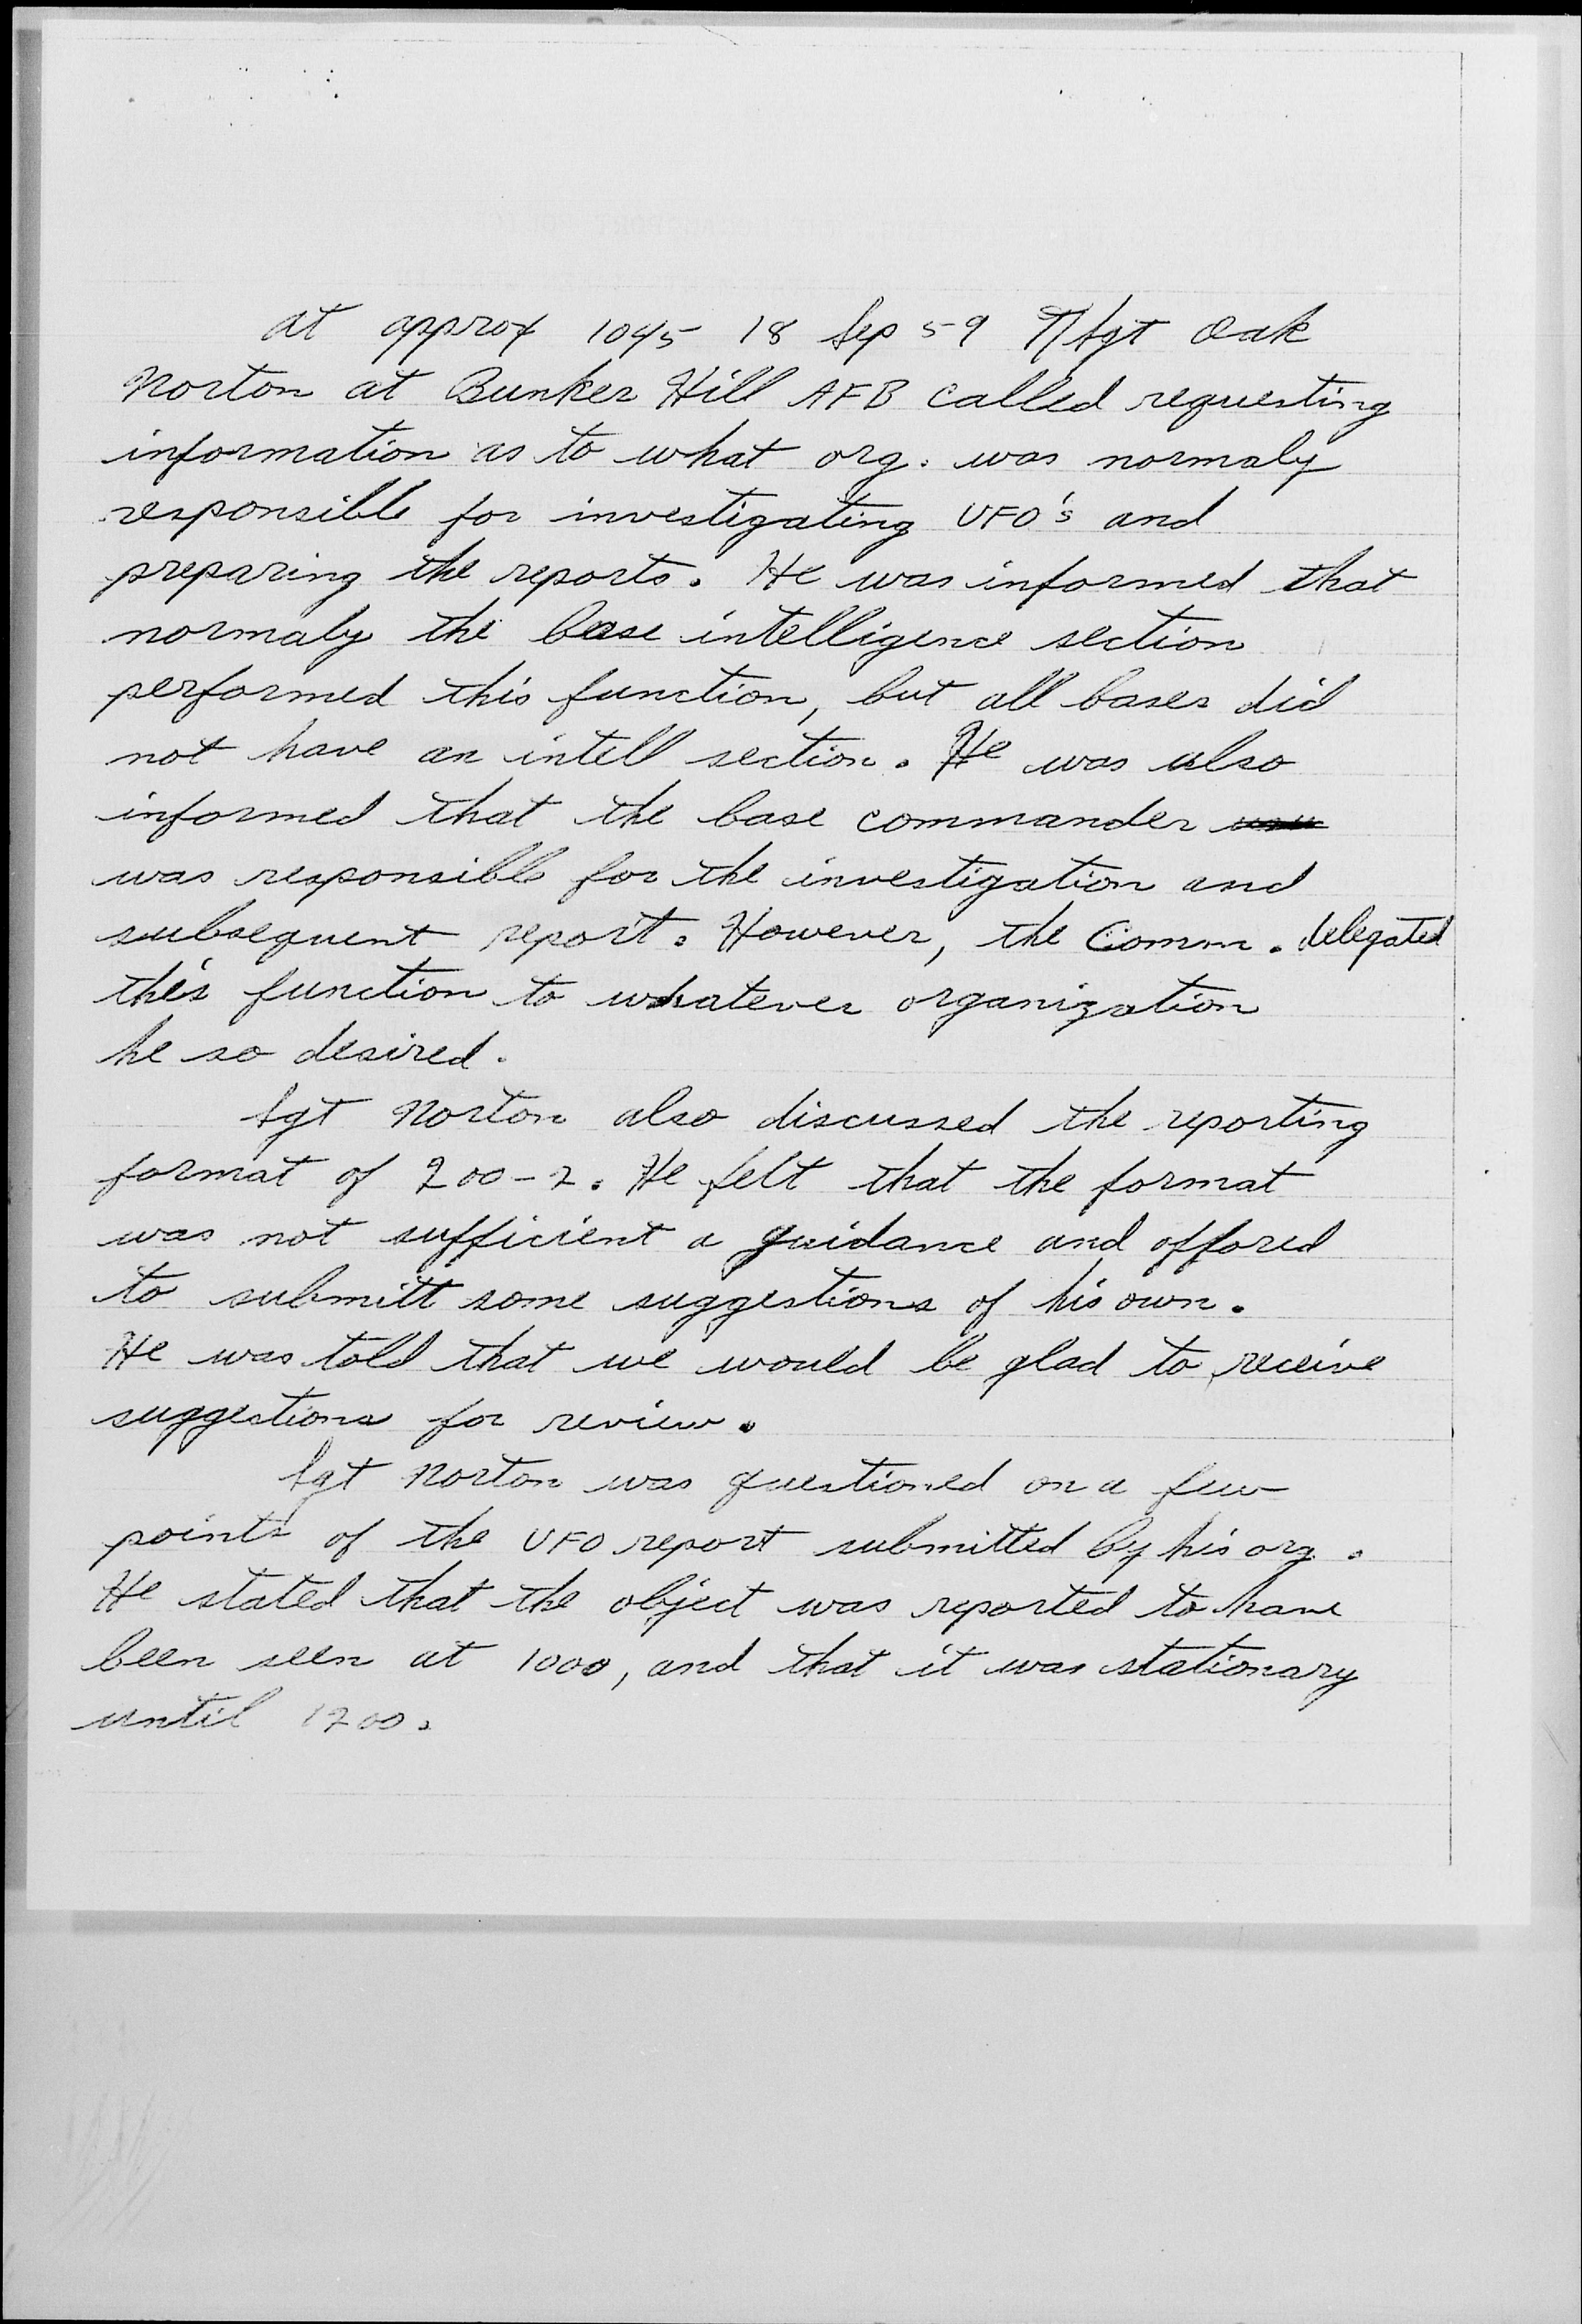 at approx 1045 18 Sep 59 T/Sgt Oak
Norton at Bunker Hill AFB called requesting
information as to what org. was normaly
responsible for investigating UFO's and
preparing the reports. He was informed that
normaly the base intelligence section
performed this function, but all bases did
not have an intell section. He was also
informed that the base commander
was responsible for the investigation and
subsequent report. However, the Comm. delegated
this function to whatever organization
he so desired.
Sgt Norton also discussed the reporting
format of 200-2. He felt that the format
was not sufficient a guidance and offored
to submitt some suggestions of his own.
He was told that we would be glad to receive
suggestions for review.
Sgt Norton was questioned on a few
points of the UFO report submitted by his org.
He stated that the object was reported to have
been seen at 1000, and that it was stationary
until 1200.